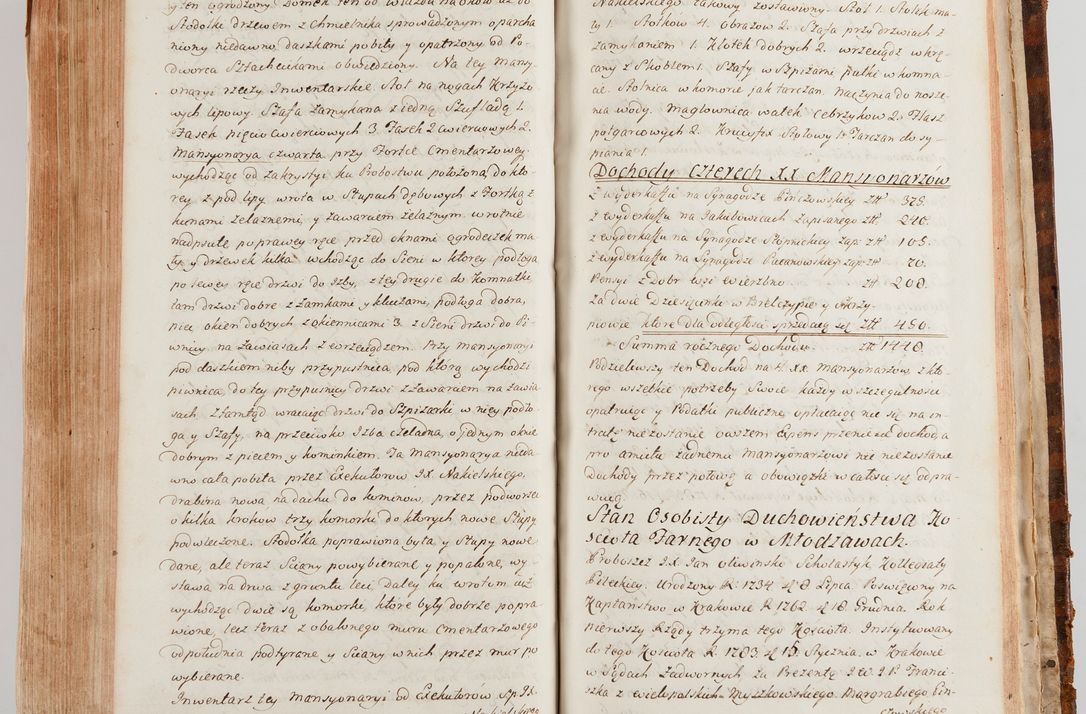 y ten ogrodzony Domek ten od wiazdu na około aż do
Stodołki drzewem z Chmielnika sprowadzonym oparcha
niony niedawno daszkami pobity y opatrzony od Po-
dworca Sztachetkami obwiedziony. Na tey Mansy-
onaryi rzeczy Inwentarskie. Stoł na nogach Krzyżo
wych lipowy. Szafa zamykana z iedną Szufladą 1.
Fasek pięcio cwierciowych 3. Fasek 2 cwierciowych 2.
Mansyonarya czwarta przy Fortce Cmentarzowey
wychodząc od Zakrystyi ku Probostwu położona, do kto-
rey z pod lipy wrota w Słupach dębowych z Fortką z
kunami żelaznemi, y zawarciem żelaznym wrotnie
nadpsute po prawey ręce przed oknami ogrodeczek ma-
ły y drzewek kilka wchodząc do Sieni w ktorey podłoga
po lewey ręce drzwi do Izby, z tey drugie do Komnatki,
tam drzwi dobre z zamkami y kluczami, podłoga dobra,
piec okien dobrych z okiennicami 3. z Sieni drzwi do Pi-
wnicy na zawiasach z wrzeciądzem. Przy mansyonaryi
pod daszkiem niby przypustnica pod ktorą wychodzi
piwnica, do tey przypusnicy drzwi z zawarciem na zawia
sach z tamtąd wracaiąc drzwi do Szpiżarki w niey podło
ga y Szafy, na przeciwko Izba czeladna, o jednym oknie
dobrym z piecem y kominkiem. Ta Mansyonarya nieda
wno cała pobita przez Exekutorow JX. Nakielskiego,
drabina nowa na dachu do kominow, przez podworzec
o kilka krokow trzy komorki do ktorych nowe Słupy
podwleczone. Stodołka poprawiona była y Słupy nowe
dane, ale teraz Sciany powybierane y popalone, wy-
stawa na drwa z gruntu leci daley ku wrotom iuż
wychodząc dwie są komorki, ktore były dobrze popra
wione, lecz teraz z obalonego muru Cmentarzowego
od południa podtyrane y Sciany w nich przez mur po
wybierane.
Inwentarz tey Mansyonaryi od Exekutorów S.p. JX.
Nakielskiego
Nakielskiego takowy zostawiony. Stoł 1. Stolik ma-
ły 1. Stołkow 4. obrazow 2. Szafa przy drzwiach z
zamykaniem 1. Kłotek dobrych 2. wrzeciądz wkrę
cany z Skoblem 1. Szafy w Szpiżarni, pułki w komna-
cie. Stolnica w komorze jak tarczan. Naczynia do nosze-
nia wody. Maglownica wałek Cebrzykow 2. Flasz
połgarcowych 2. Krucyfix Stołowy 1. Tarczan do sy-
piania 1.
Dochody Czterech XX Mansyonarzow
Z wyderkaffu na Synagodze Pińczowskiey zł 375.
Z wyderkaffu na Jakubowicach zapisanego zł 240.
z wyderkaffu na Synagodze Stopnickiey zap: zł 105.
z wyderkaffu na Synagodze Pacanowskiey zap: zł 70.
Pensyi z Dobr wsi Wierzbno zł 200.
Za dwie Dziesięcinki w Bełczypie y Skrzy-
piowie ktore dla odległości sprzedaią się zł 450.
Summa roczniego Dochodu. zł 1440.
Podzieliwszy ten Dochod na 4. XX. mansyonarzow z kto
rego wszelkie potrzeby Swoie każdy w szczegulności
opatruiąc y Podatki publiczne opłacaiąc nic się na in-
tratę niezostanie owszem Expens przenie sie dochod, a
pro amictu żadnemu Mansyonarzowi nic niezostanie
Dochody przez połowę a obowiązki w całości się odpra-
wuią
Stan Osobisty Duchowieństwa Ko-
ścioła Farnego w Młodzawach.
Proboszcz JX. Jan Oliwinski Scholastyk Kollegiaty
Pileckiey. Urodzony R: 1734 d 8 Lipca Poswięcony na
Kapłaństwo w Krakowie R 1762 d 18 Grudnia. Rok
pierwszy Rządy trzyma tego Kościoła. Instytuowany
do tego Kościoła R. 1783 d 15 Stycznia, w Krakowie
w Sądach Zadwornych za Prezentą J W J P. Franci-
szka z wielopolskich Myszkowskiego Margrabiego Pin-
czowskiego